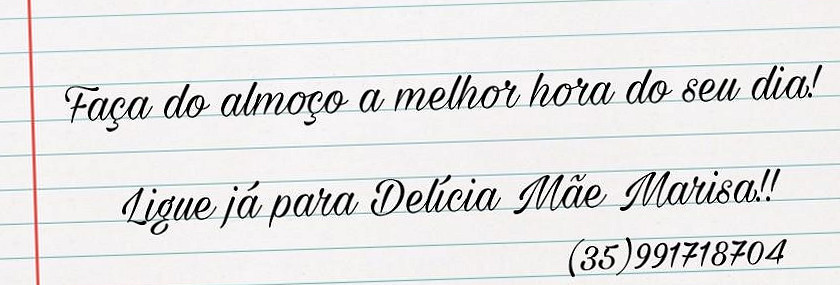 Faça do almoço a melhor hora do seu dia!
Ligue já para Delícia Mãe Marisa!!
(35)991718704